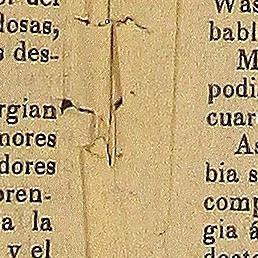 dosas,
s des-
rgian
nores
dores
pren-
a la
y el
Was
babl
M
podi
cuar
As
bía s
comp
gia á